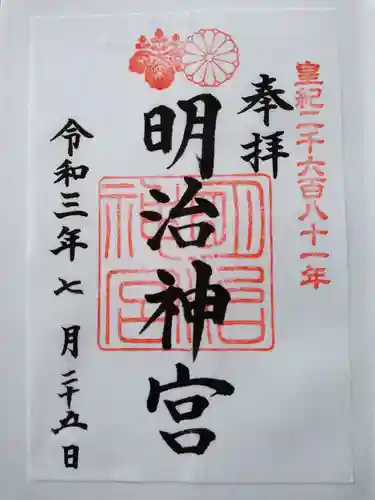 皇紀二千六百八十一年
奉拝
明治神宮
明治神宮
令和三年七月二十五日